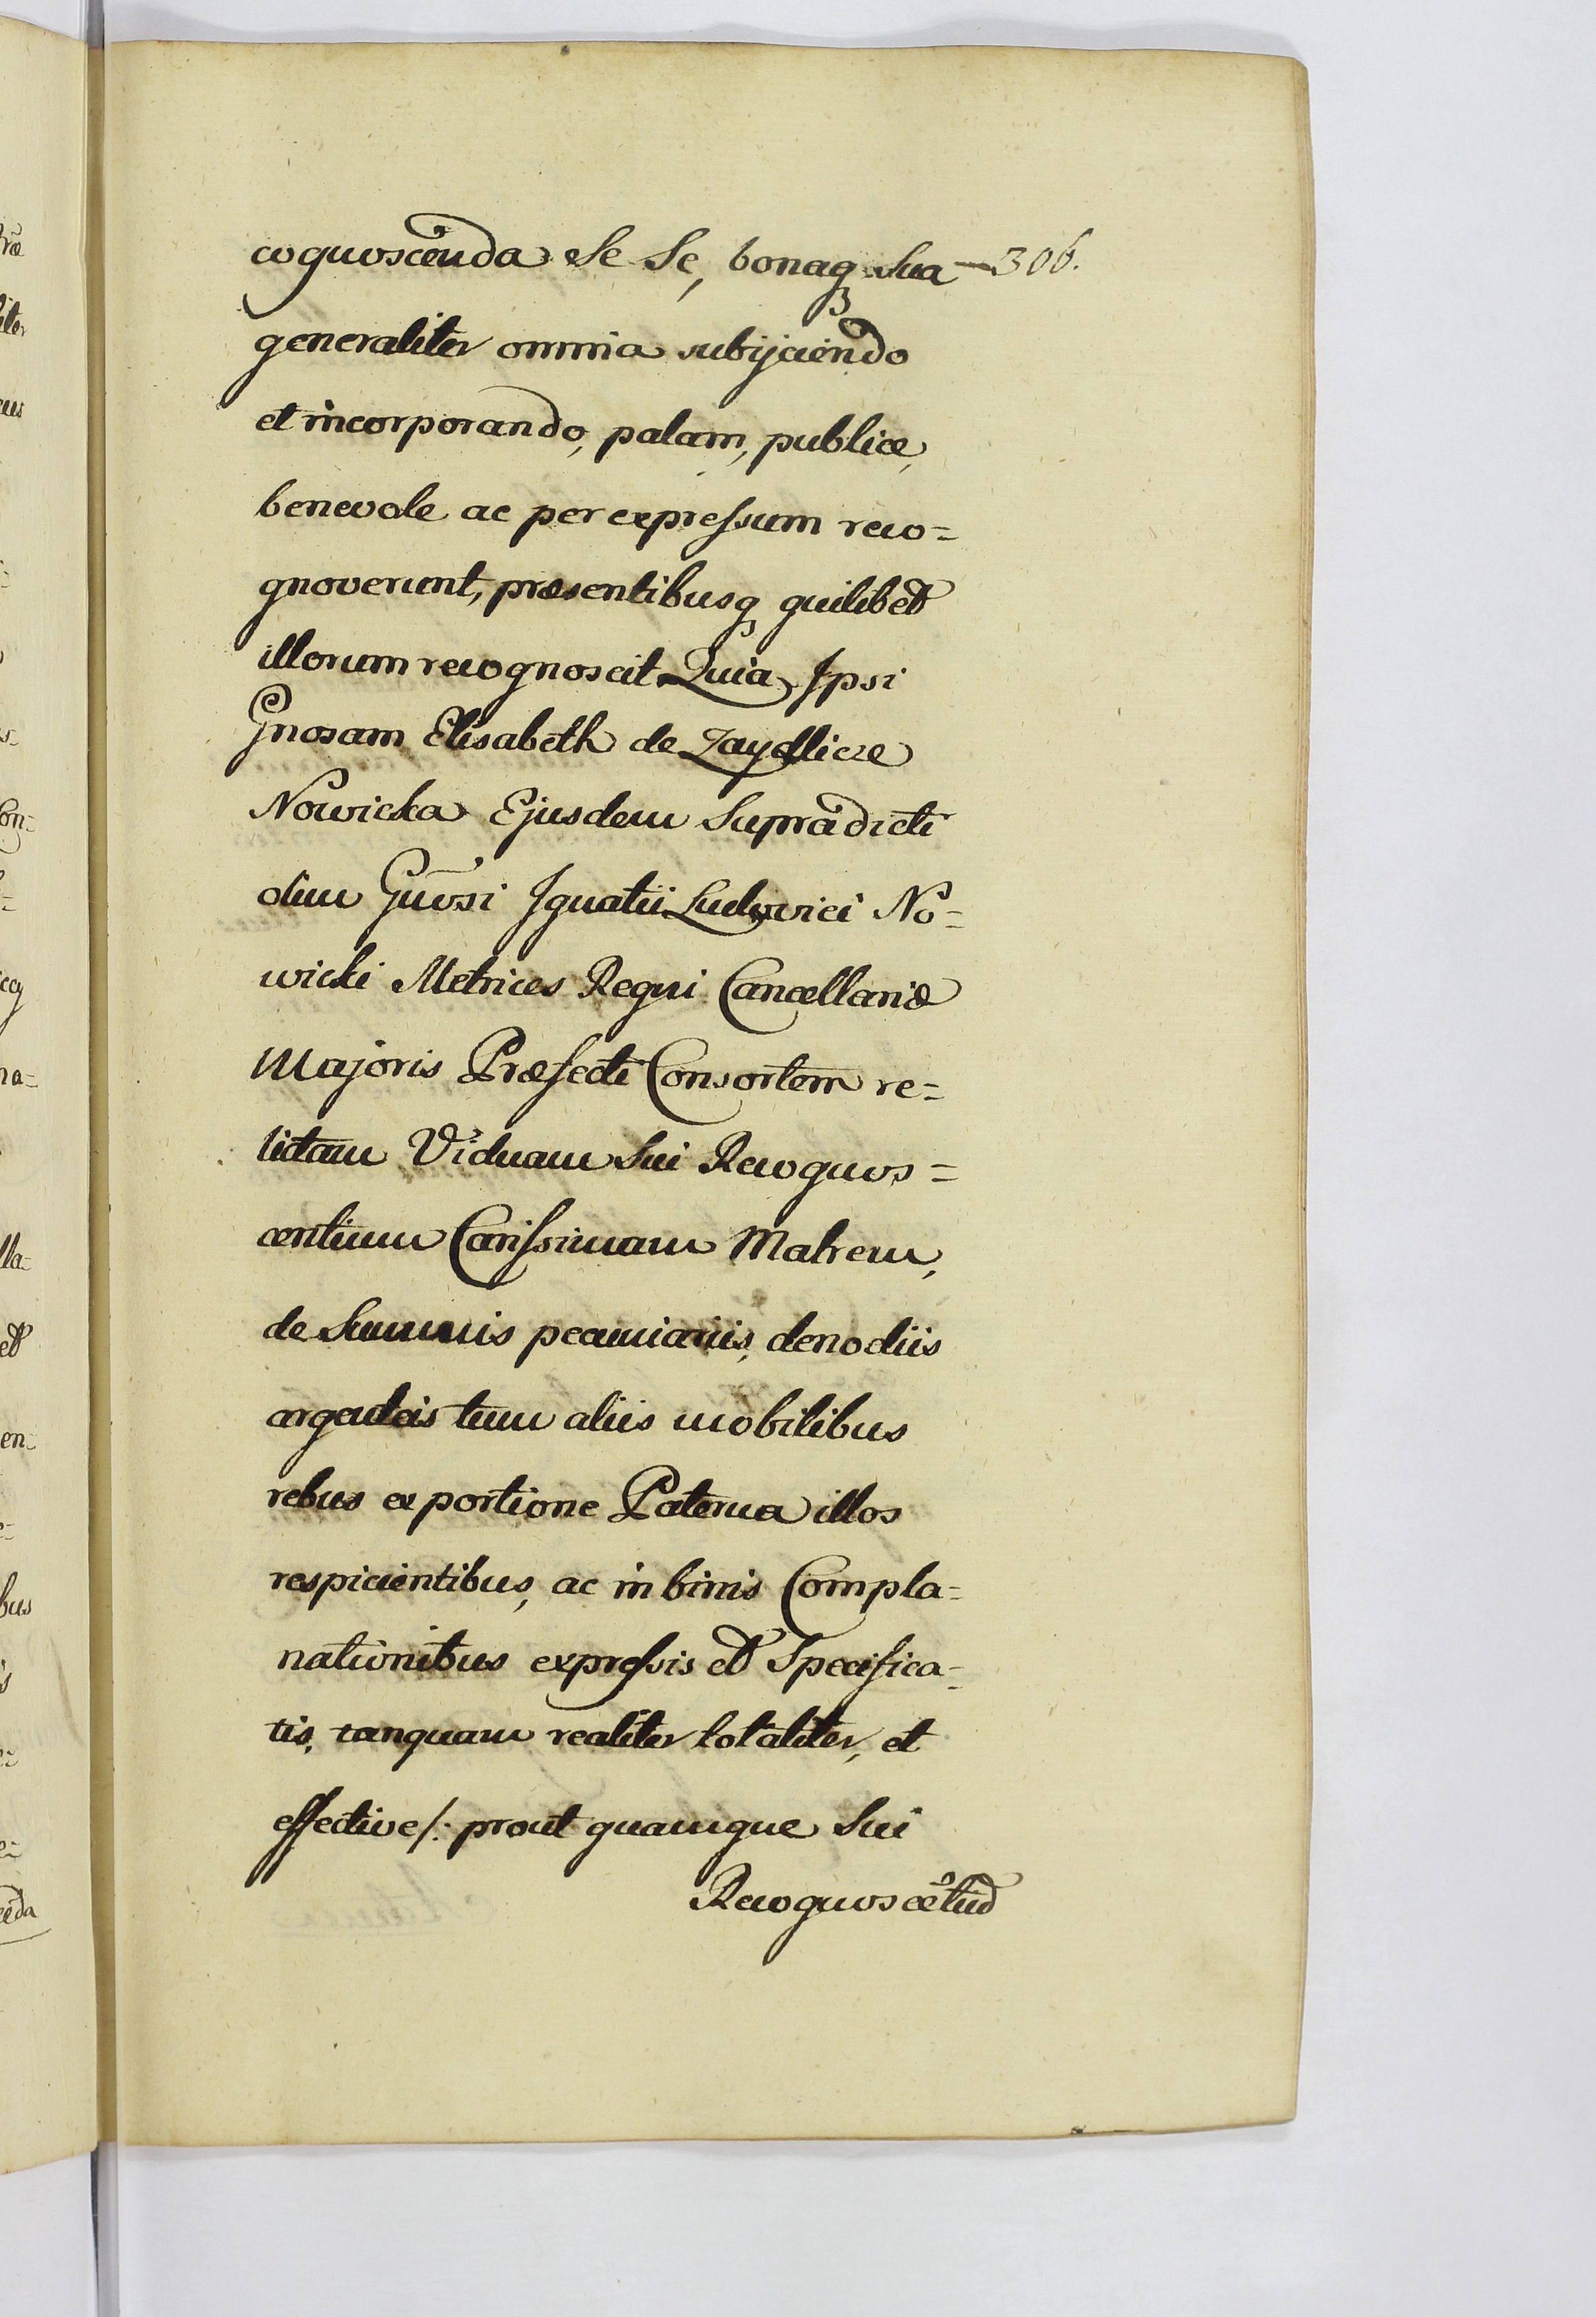 cognoscenda Se Se, bonaq̃ Sua 306.
generaliter omnia subijciendo
et incorporando, palam, publice,
benevole ac per expressum reco=
gnoverunt, præsentibusq̃ quilibet
illorum recognoscit Quia Ipsi
Gnosam Elisabeth de Zaydlicze
Nowicka Ejusdem Supradicti
olim Gnosi Ignatii Ludovici No=
wicki Metrices Regni Cancellariæ
Majoris Præfecti Consortem re=
lictam Viduam Sui Recognos=
centium Carissimam Matrem,
de Summis pecuniariis, clenodiis
argenteis tum aliis mobilibus
rebus ex portione Paterna illos
respicientibus, ac in binis Compla=
nationibus expressis et Specifica=
tis, tanquam realiter totaliter, et
effective /: prout quamque Sui